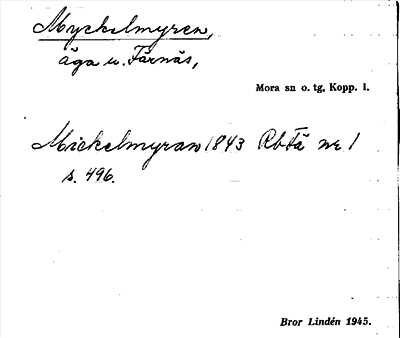 Myckelmyren,
äga u. Färnäs,
Mora sn o. tg, Kopp. l.
Mickelmyran 1843 Rb Fä nr 1
s. 496.
Bror Lindén 1945.